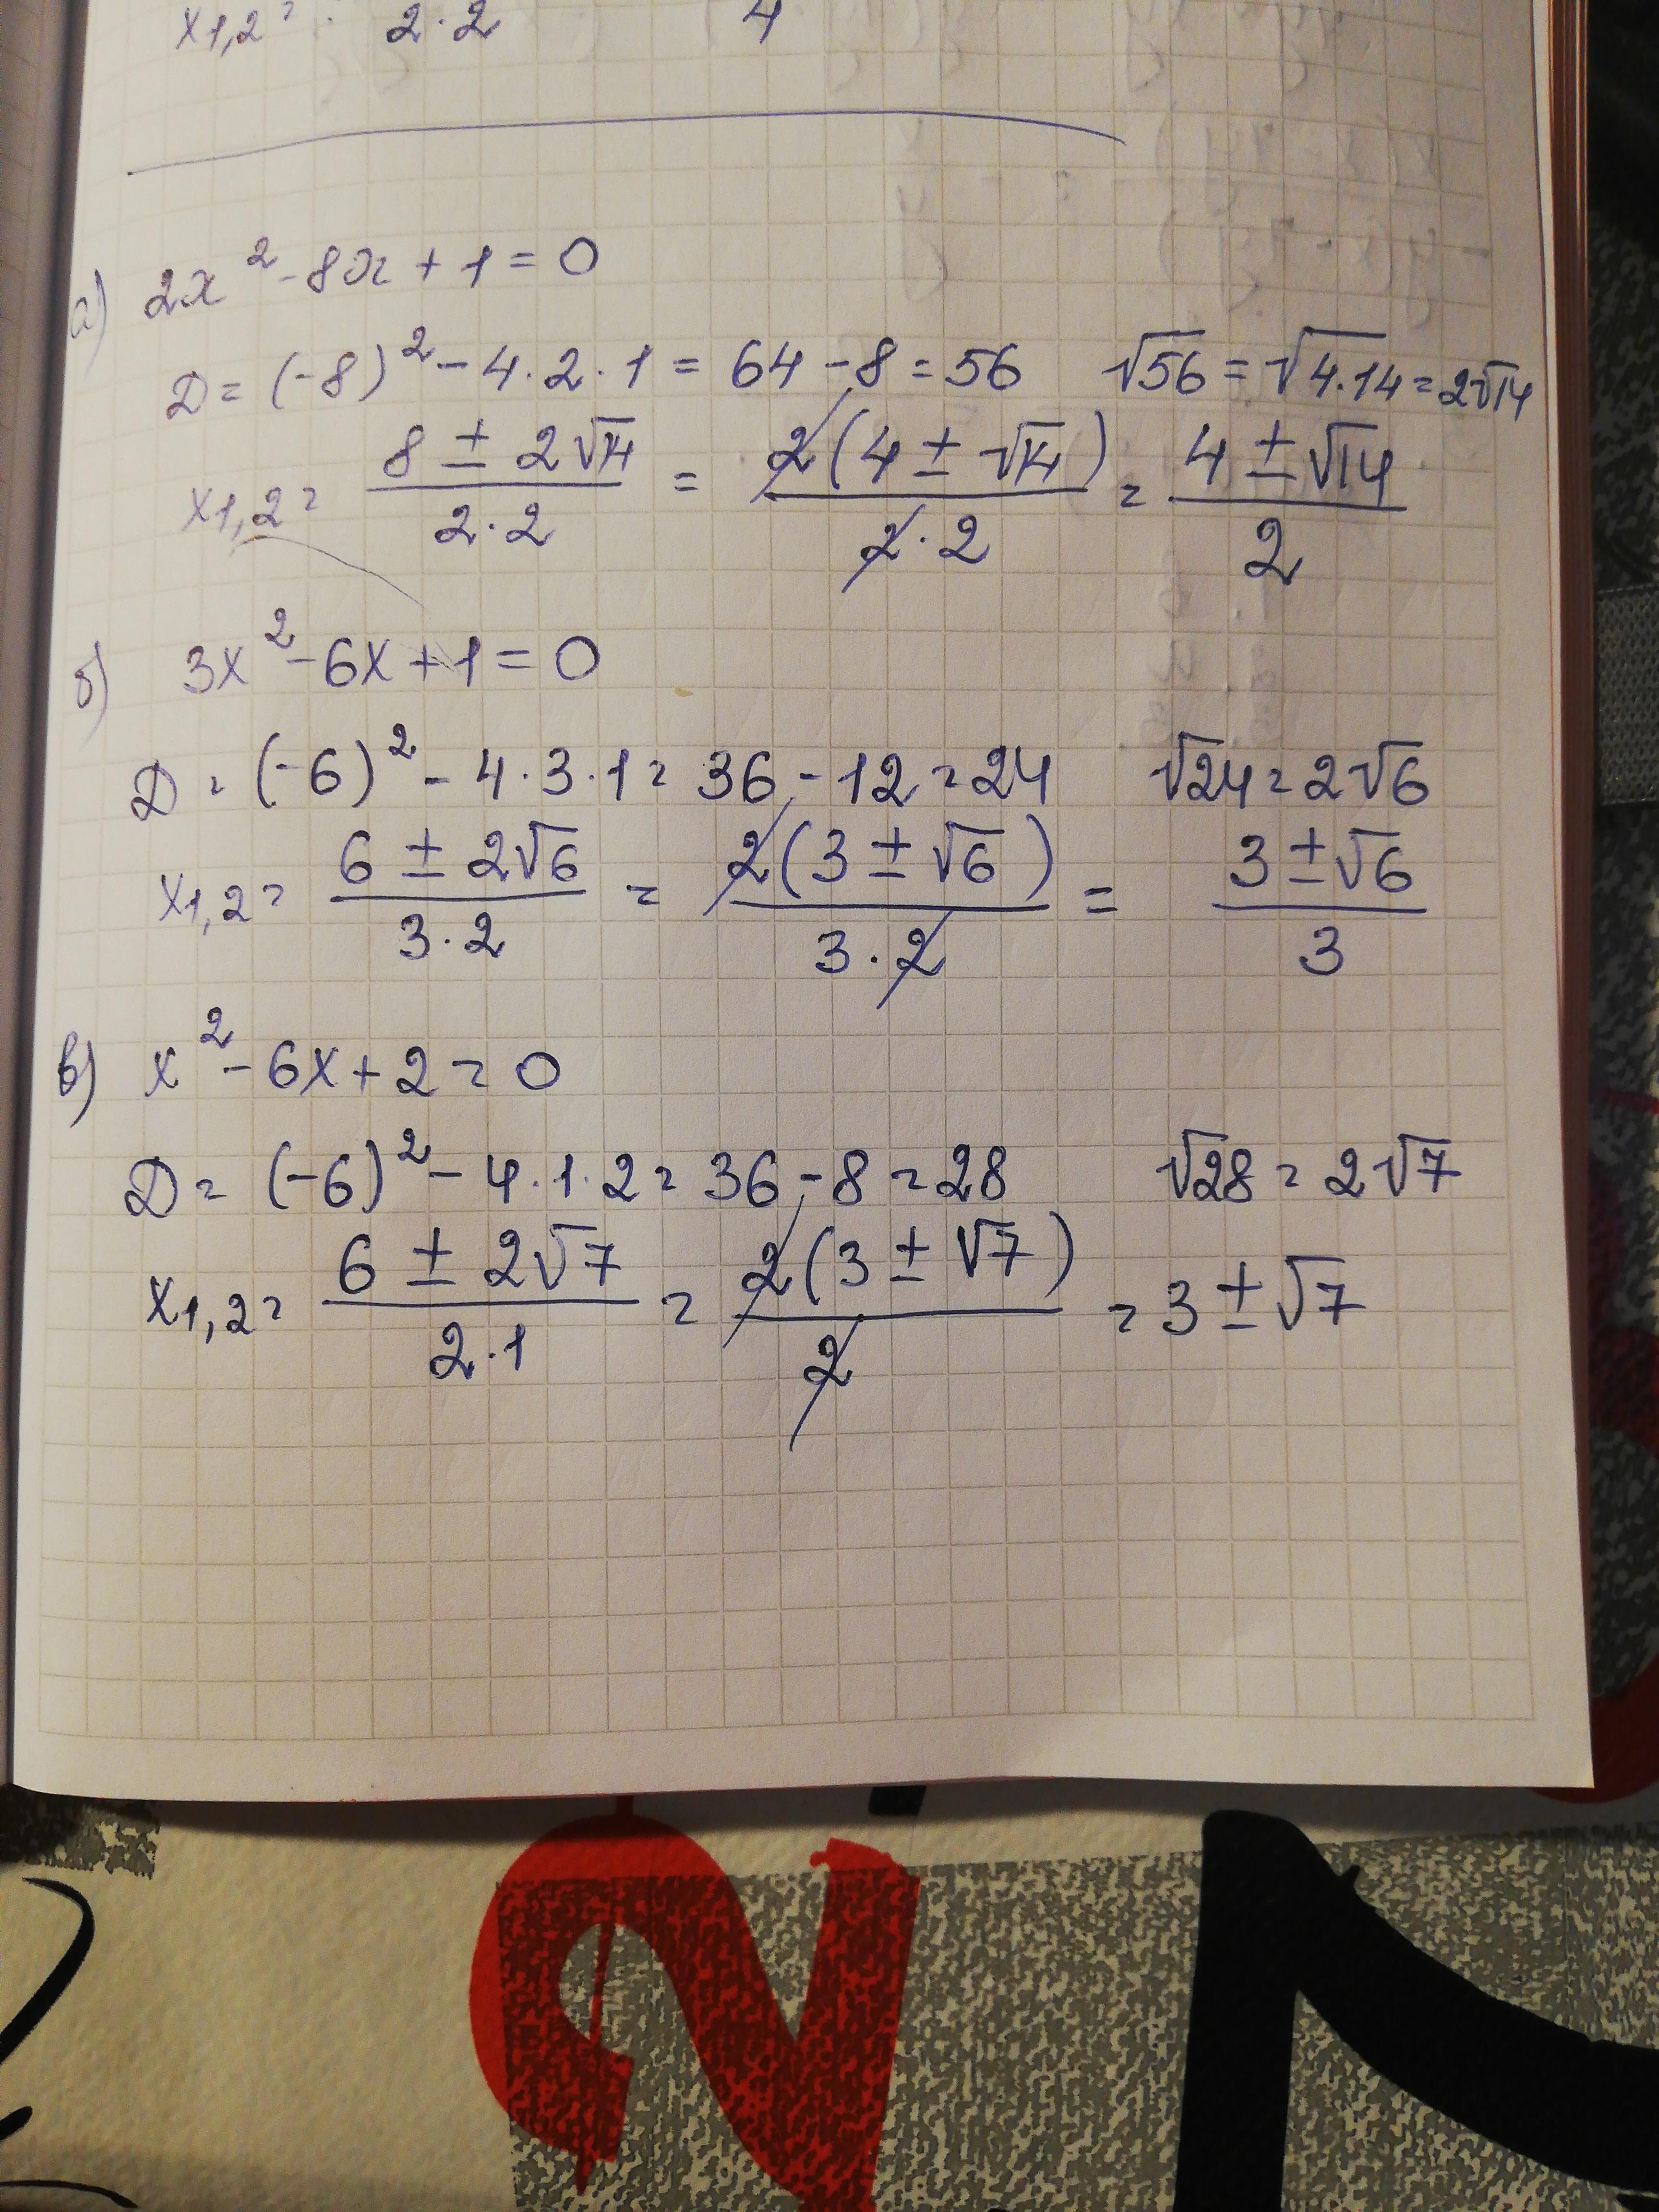 x1,2 = 2·2 4
а) 2x² - 8x + 1 = 0
D = (-8)² - 4·2·1 = 64 - 8 = 56 √56 = √4·14 = 2√14
x1,2 = (8 ± 2√14)/(2·2) = 2(4 ± √14)/(2·2) = (4 ± √14)/2
б) 3x² - 6x + 1 = 0
D = (-6)² - 4·3·1 = 36 - 12 = 24 √24 = 2√6
x1,2 = (6 ± 2√6)/(3·2) = 2(3 ± √6)/(3·2) = (3 ± √6)/3
в) x² - 6x + 2 = 0
D = (-6)² - 4·1·2 = 36 - 8 = 28 √28 = 2√7
x1,2 = (6 ± 2√7)/(2·1) = 2(3 ± √7)/2 = 3 ± √7